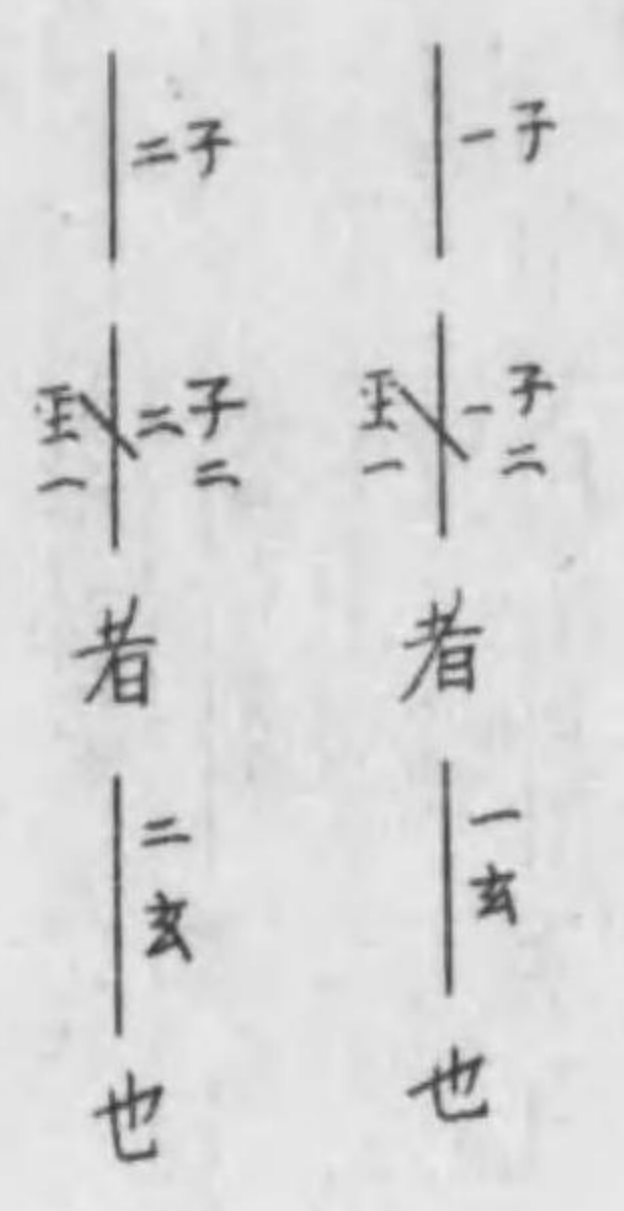 一子一一子二者一玄也
二子一二子二者二玄也